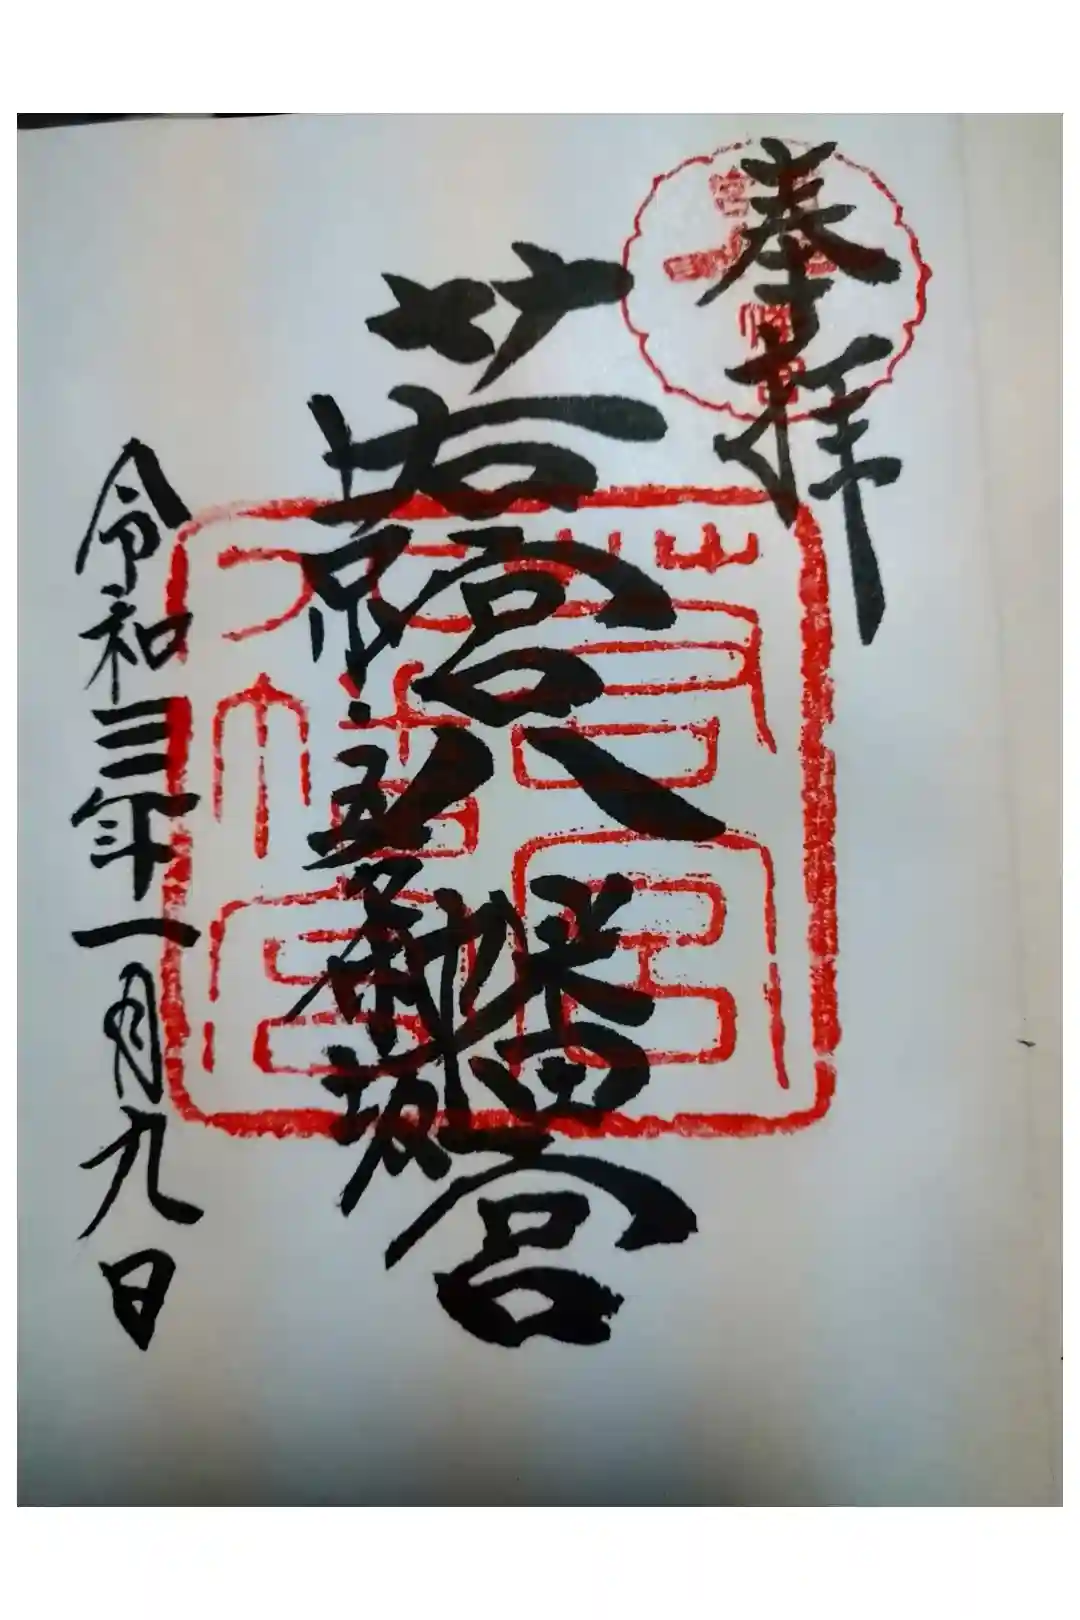 奉拝
若宮八幡宮
京・五條坂
令和三年一月九日